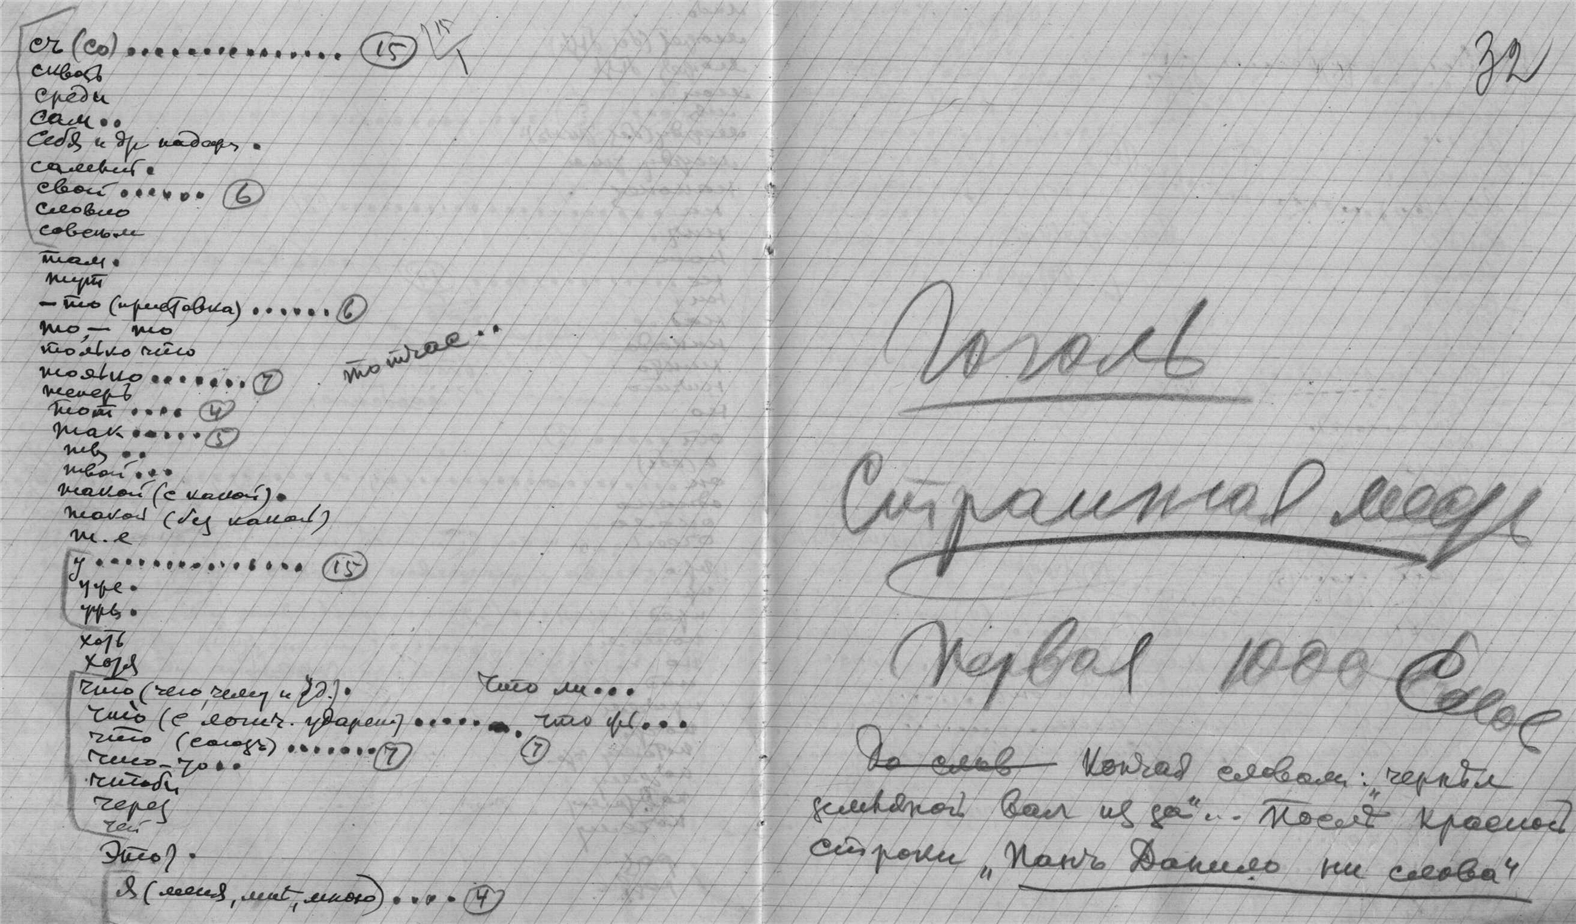 съ (со) ............... 15
сквозь
среди
сам..
себя и др падеж.
самый.
свой ...... 6
словно
совсем
там.
тут
– то (приставка) ...... 6
то – то
только что
тотчас..
только ....... 7
теперь
тот .... 4
так ..... 5
ты ..
твой ...
такой (с какой).
такой (без какой)
т.е
у .............. 15
уже.
ужъ.
хоть
хотя
что (чего, чему и т.д.).
что ли...
что (с логич. ударен) .......
что ж...
7
что (союзъ) ....... 7
что-то..
чтобы
через
чей
Это?.
я (меня, мне, мною) .... 4
32
Гоголь
Страшная месть
Первая 1000 Слов
До слов Кончая словом: "чернел
земляной вал из за"... После красной
строки "Панъ Данило ни слова"